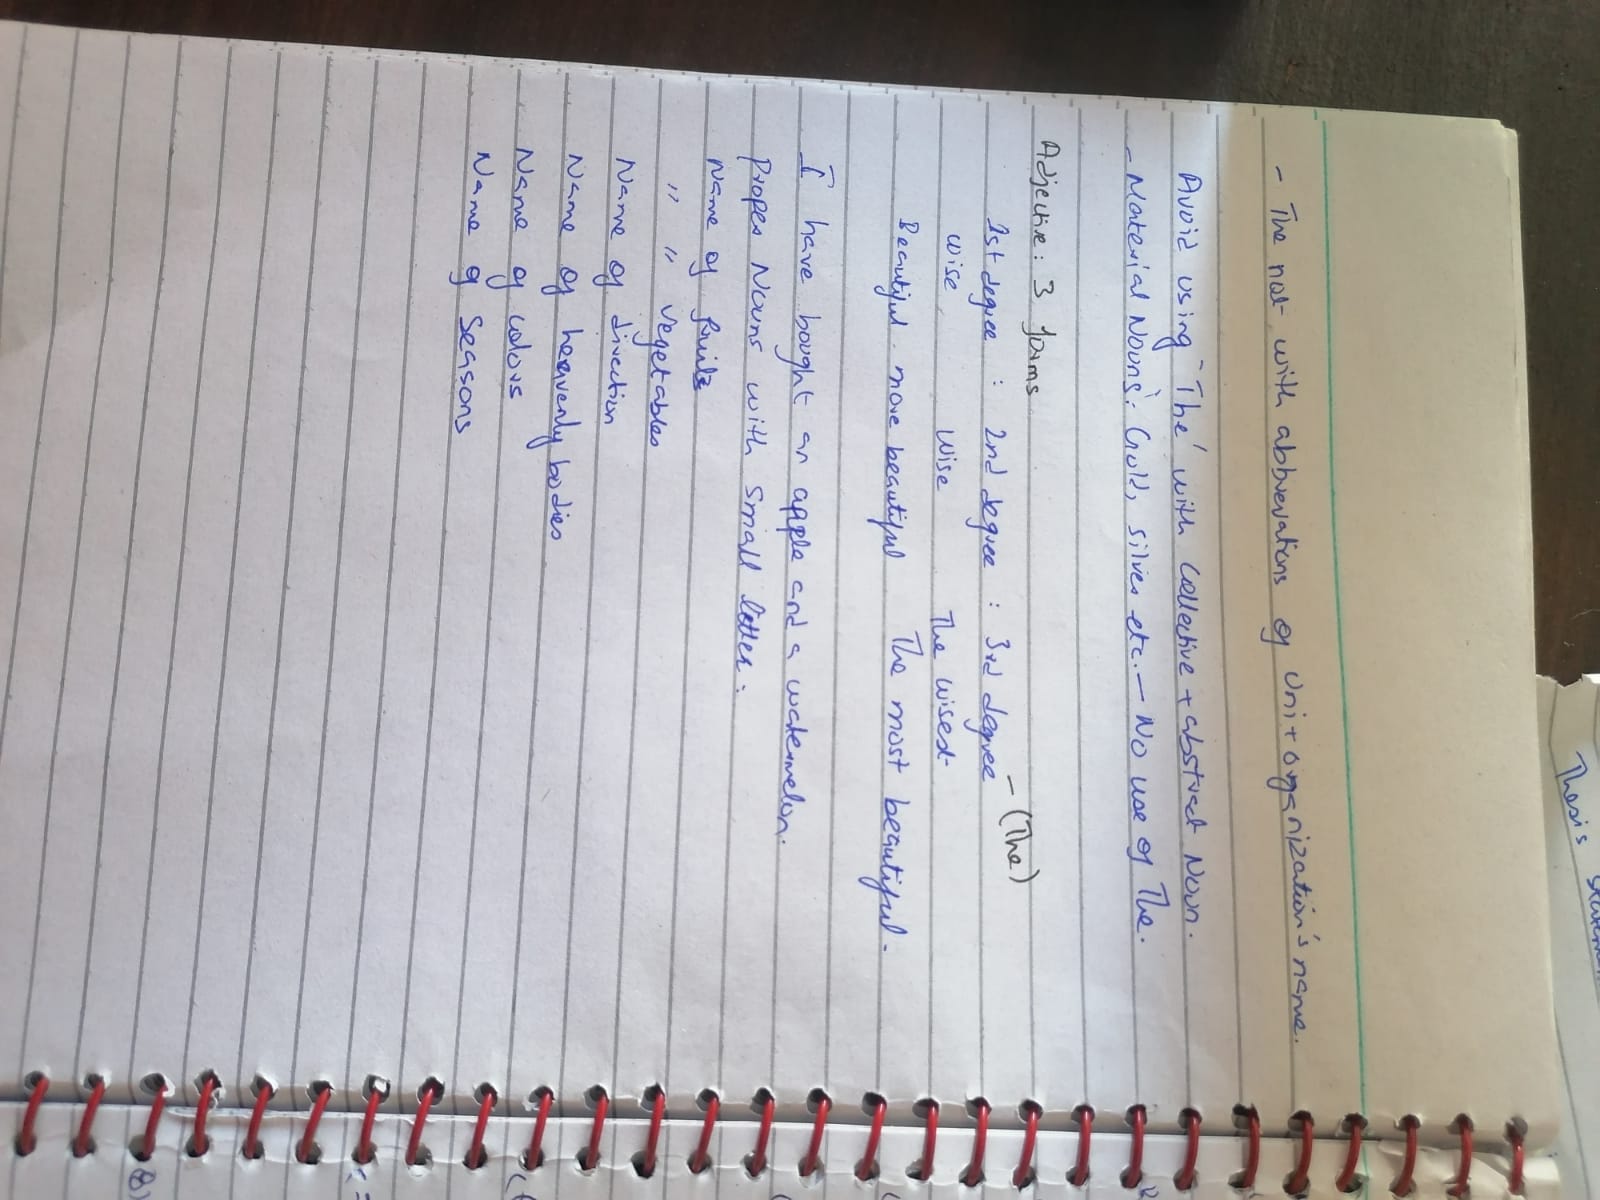 Thesis
- The not with abbrevations of Uni + organization's name.
Avoid using "The' with Collective + abstract Noun.
- Material Nouns: Gold, silver etc. - No use of The.
Adjective: 3 forms
1st degree : 2nd degree : 3rd degree - (The)
wise wise The wisest
Beautiful more beautiful The most beautiful.
I have bought an apple and a watermelon.
Proper Nouns with small letter:
Name of fruits
" " vegetables
Name of direction
Name of heavenly bodies
Name of colors
Name of Seasons
8)